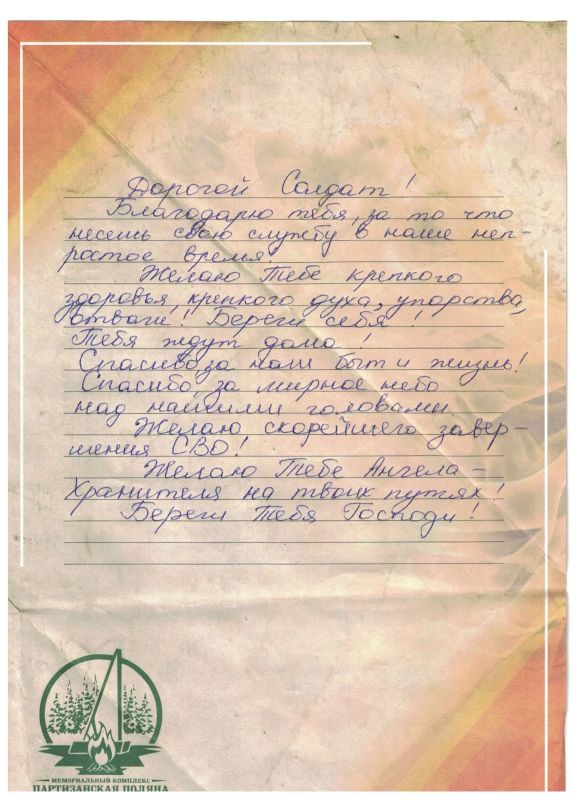 Дорогой Солдат!
Благодарю тебя, за то что
несешь свою службу в наше неп-
ростое время.
Желаю Тебе крепкого
здоровья, крепкого духа, упорства,
отваги! Береги себя!
Тебя ждут дома!
Спасибо, за наш быт и жизнь!
Спасибо, за мирное небо
над нашими головами
Желаю скорейшего завер-
шения СВО!
Желаю Тебе Ангела-
Хранителя на твоих путях!
Береги Тебя Господи!
МЕМОРИАЛЬНЫЙ КОМПЛЕКС
ПАРТИЗАНСКАЯ ПОЛЯНА